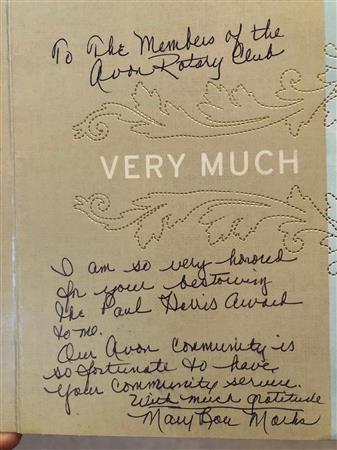 To The Members of the
Avon Rotary Club
VERY MUCH
I am so very honored
for your bestowing
the Paul Davis Award
to me.
Our Avon Community is
so fortunate to have
your community service.
With much gratitude
Mary Lou Marks